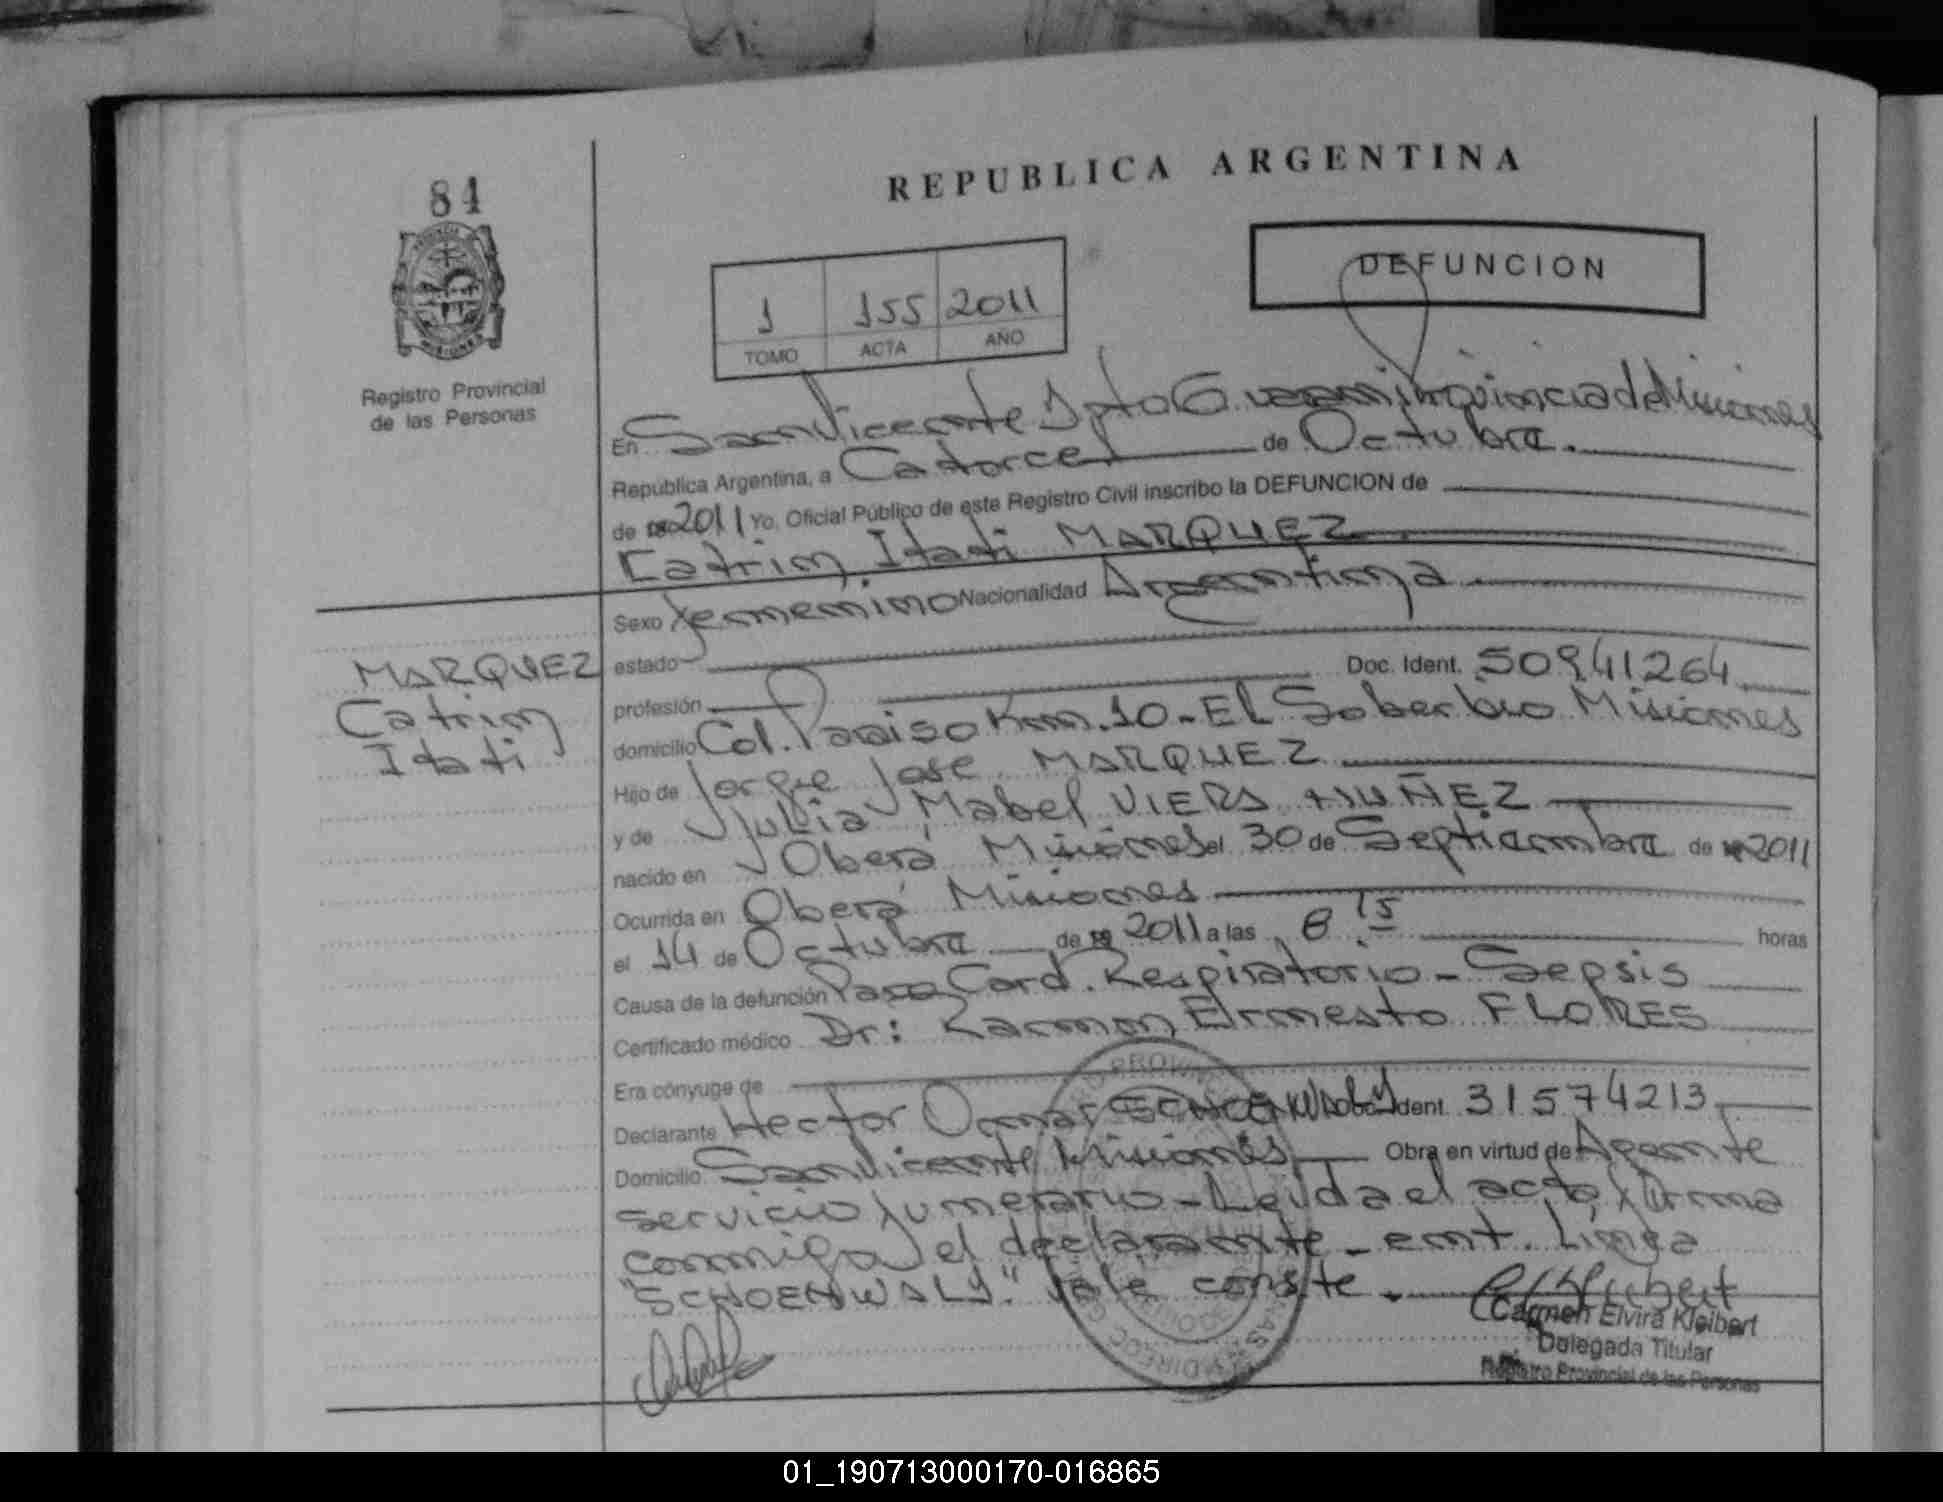 REPUBLICA ARGENTINA
84
DEFUNCION
1 155 2011
TOMO ACTA AÑO
Registro Provincial
de las Personas
En San Vicente Dpto Guarani Provincia de Misiones
Republica Argentina, a Catorce de Octubre.
de 2011 Yo, Oficial Público de este Registro Civil inscribo la DEFUNCION de
Catrin Itati MARQUEZ
Sexo femenino Nacionalidad Argentina
estado
Doc. Ident. 50941264
profesión
MARQUEZ
Catrin
Itati
domicilio Col. Paraiso Km. 10 - El Soberbio Misiones
Hijo de Jorge Jose MARQUEZ
y de Julia Mabel VIERA NUÑEZ
nacido en Oberá Misiones el 30 de Septiembre de 2011
Ocurrida en Oberá Misiones
el 14 de Octubre de 2011 a las 8.15 horas
Causa de la defunción Paro Card. Respiratorio - Sepsis
Certificado médico Dr: Ramon Ernesto FLORES
Era cónyuge de
Declarante Hector Omar SCHOENWALY Doc. Ident. 31574213
Domicilio San Vicente Misiones Obra en virtud de Agente
servicio funerario - Leida el acta, firma
conmigo el declarante - ent. Linea
"SCHOENWALY". Vale conste.
Carmen Elvira Kleibert
Delegada Titular
Registro Provincial de las Personas
01_190713000170-016865